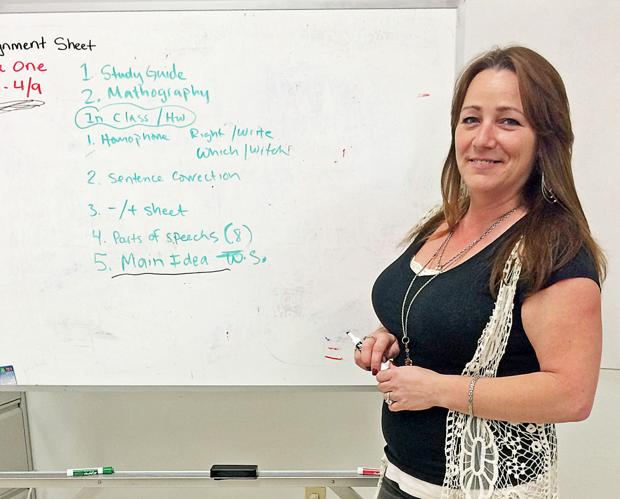 gnment Sheet
One
- 4/9
1. Study Guide
2. Mathography
In Class / Hw
1. Homophone Right / Write
Which / Witch
2. Sentence Correction
3. -/+ sheet
4. Parts of speechs (8)
5. Main Idea W.S.